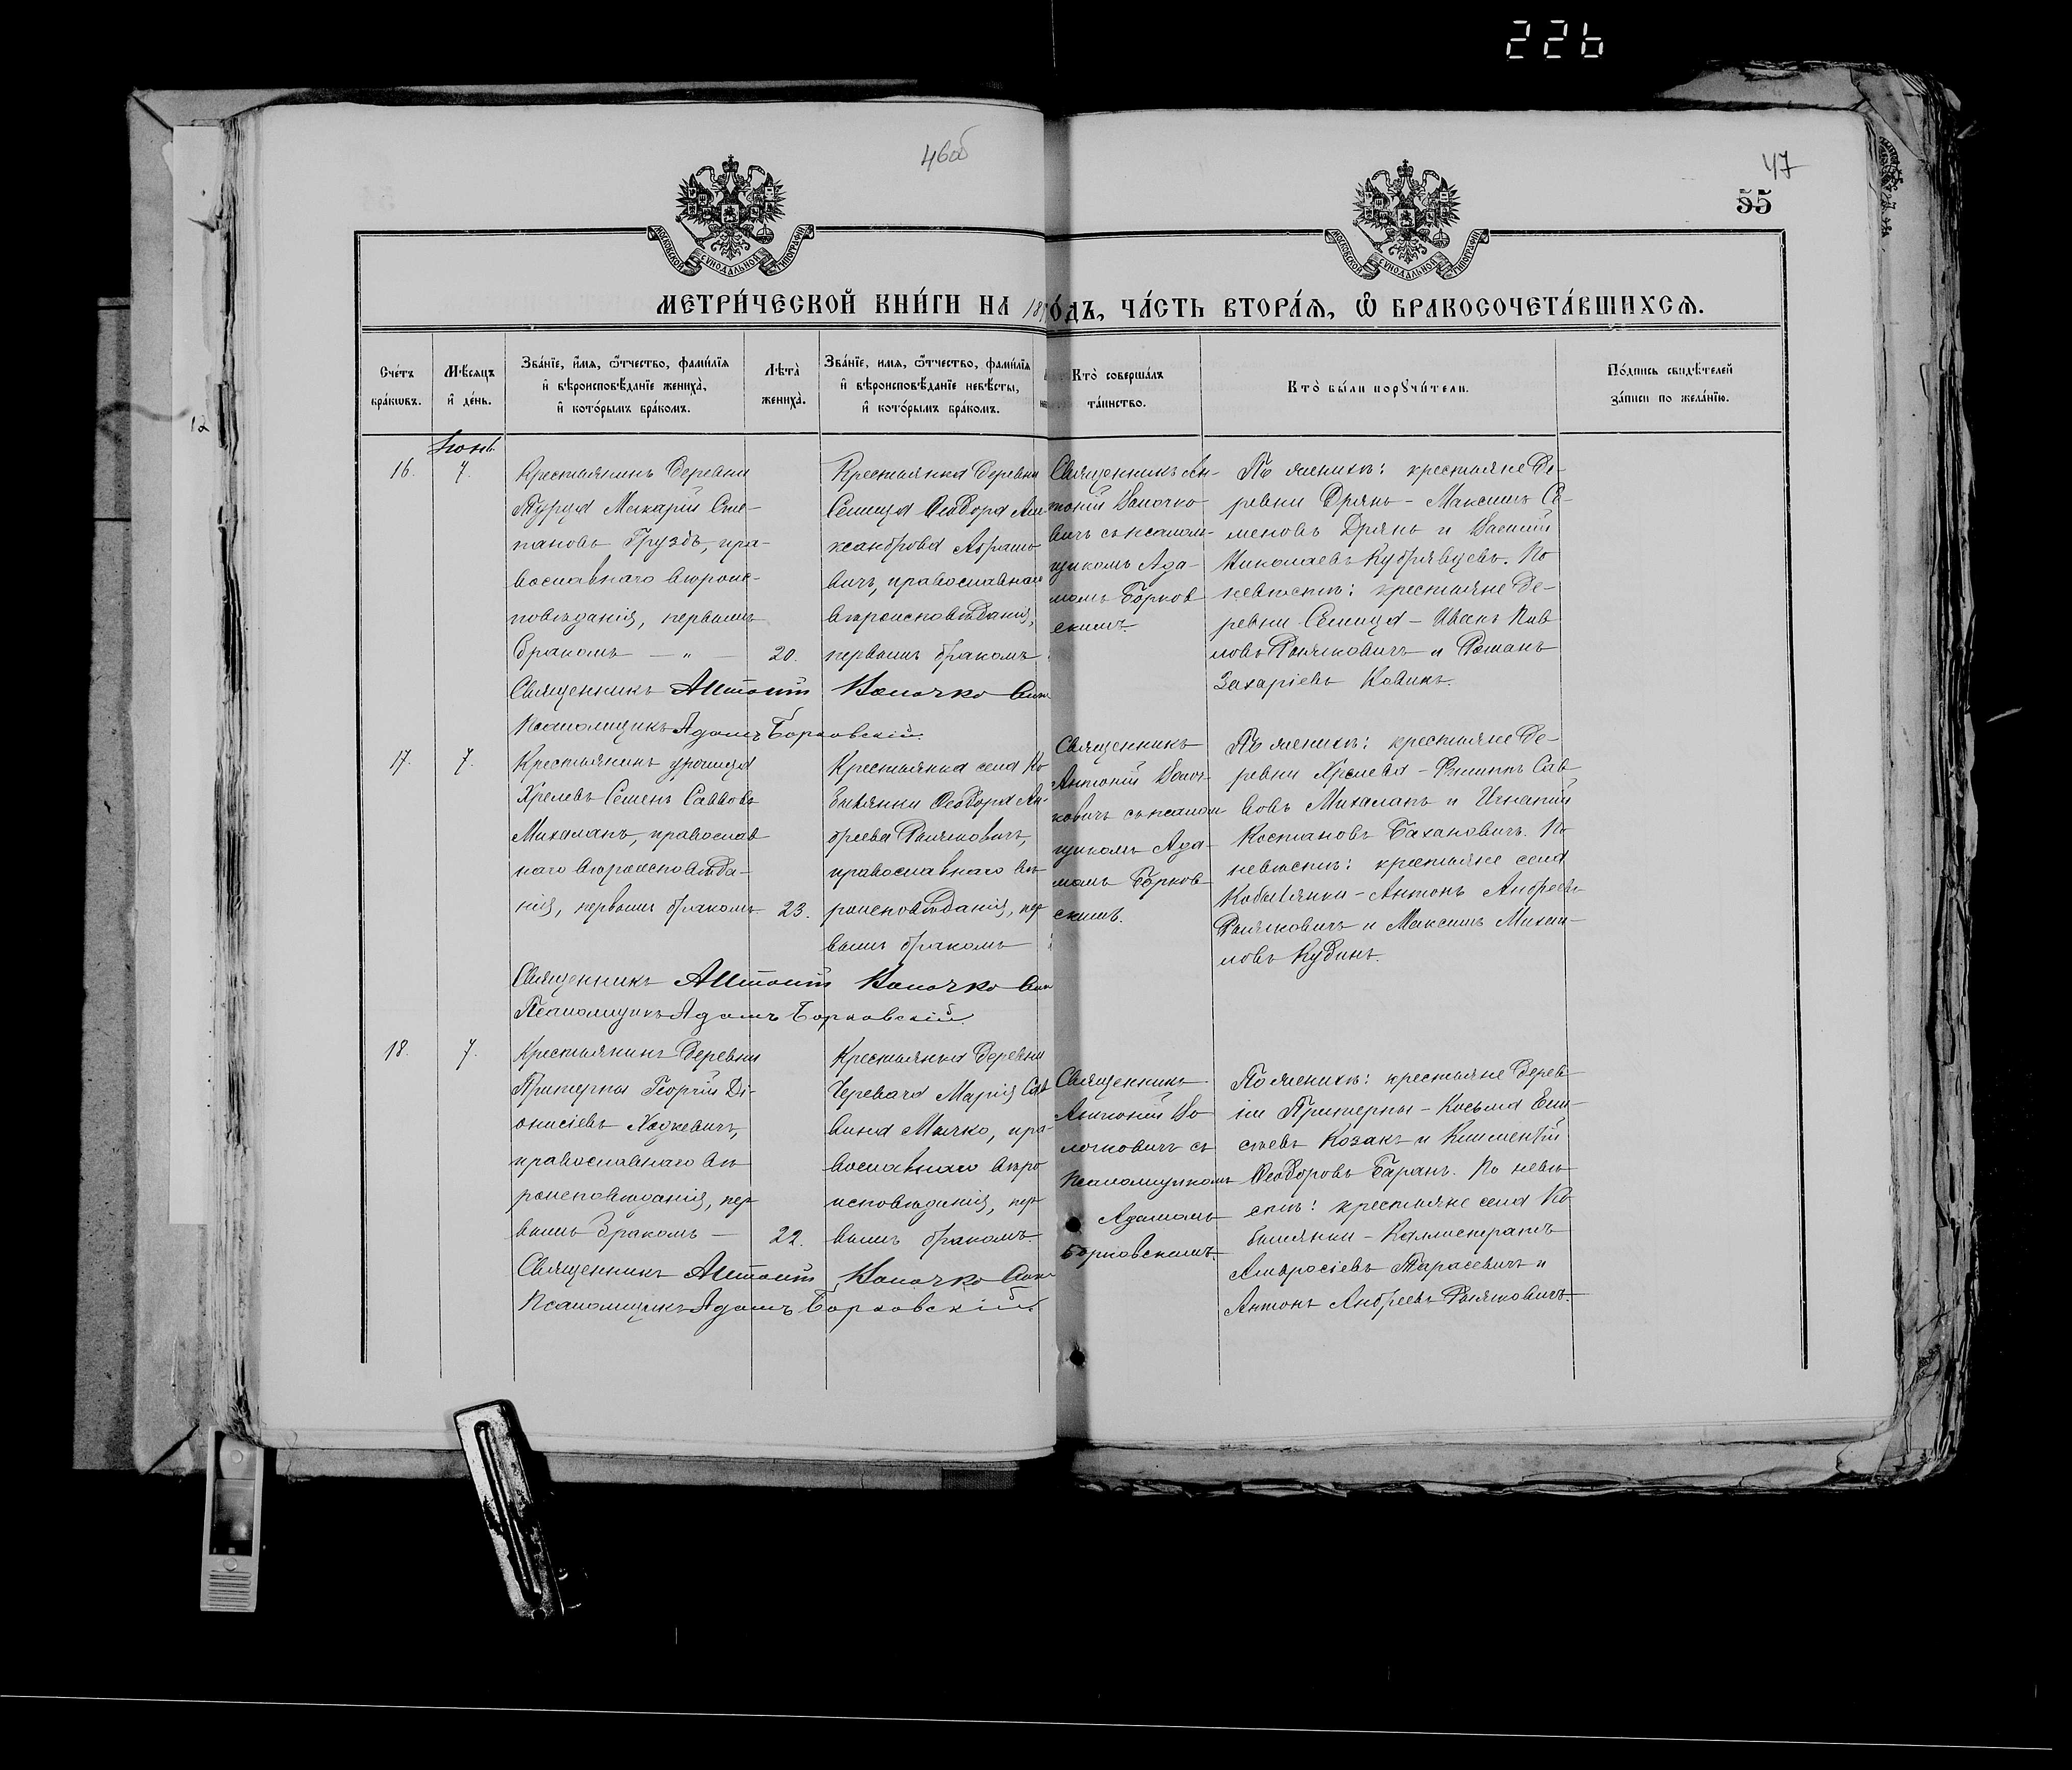 226
46об
47
55
МОСКОВСКОЙ СѴНОДАЛЬНОЙ ТИПОГРАФІИ
МОСКОВСКОЙ СѴНОДАЛЬНОЙ ТИПОГРАФІИ
МЕТРИ́ЧЕСКОЙ КНИ́ГИ НА 18 ГО́ДЪ, ЧА́СТЬ ВТОРА́Я, Ѽ БРАКОСОЧЕТА́ВШИХСЯ.
Сче́тъ бра́кѡвъ.
Мѣ́сяцъ и҆ де́нь.
Зва́нїе, и҆́мя, ѻ҆́тчество, фами́лїя и҆ вѣроисповѣ́данїе жениха̀, и҆ кото́рымъ бра́комъ.
Лѣта̀ жениха̀.
Зва́нїе, имя, ѻ҆́тчество, фами́лїя и҆ вѣроисповѣ́данїе невѣ́сты, и҆ кото́рымъ бра́комъ.
Кто̀ соверша́лъ та́инство.
Кто̀ бы́ли порꙋчи́тели.
По́дпись свидѣ́телей за́писи по жела́нїю.
16.
7.
Крестьянинъ деревни
Турца Макарій Сте-
пановъ Груздъ, пра-
вославнаго вѣроис-
повѣданія, первымъ
бракомъ — „ —
20.
Крестьянка деревни
Селища Ѳеодора Але-
ксандрова Абрамо
вичъ, православнаго
вѣроисповѣданія,
первымъ бракомъ
Священникъ Ан-
тоній Волочко
вичъ съ псалом-
щикомъ Ада-
момъ Борков
скимъ.
По женихѣ: крестьяне де-
ревни Дрянь - Максимъ Се-
меновъ Дрянь и Василій
Николаевъ Кудрявцевъ. По
невѣстѣ: крестьяне де-
ревни Селища - Иванъ Пав
ловъ Рылковичъ и Романъ
Захаріевъ Ковикъ.
Священникъ Антоній Волочко
Псаломщикъ Адамъ Борковскій.
17.
7.
Крестьянинъ урочища
Хрелевъ Семенъ Савовъ
Михаланъ, православ
наго вѣроисповѣда-
нія, первымъ бракомъ
23.
Крестьянка села Ко
былянки Ѳеодора Ан-
дреева Рылковичъ,
православнаго вѣ
роисповѣданія, пер
вымъ бракомъ
Священникъ
Антоній Волоч-
ковичъ съ псалом
щикомъ Ада-
момъ Борков
скимъ.
По женихѣ: крестьяне де-
ревни Хрелева - Филиппъ Сав
вовъ Михаланъ и Игнатій
Костановъ Бахановичъ. По
невѣстѣ: крестьяне села
Кобылянки - Антонъ Андреевъ
Рылковичъ и Максимъ Михаи-
ловъ Кудинъ.
Священникъ Антоній Волочко
Псаломщикъ Адамъ Борковскій.
18.
7.
Крестьянинъ деревни
Притерпы Георгій Ді-
онисіевъ Хадкевичъ,
православнаго вѣ
роисповѣданія, пер
вымъ бракомъ —
22.
Крестьянка деревни
Черевача Марія Сав
вина Мычко, пра-
вославнаго вѣро
исповѣданія, пер
вымъ бракомъ.
Священникъ
Антоній Во
лочковичъ съ
псаломщикомъ
Адамомъ
Борковскимъ.
По женихѣ: крестьяне дерев
ни Притерпы - Косьма Ели-
сѣевъ Козакъ и Климентій
Ѳеодоровъ Баранъ. По невѣ
стѣ: крестьяне села Ко
былянки - Каллистратъ
Амвросіевъ Тарасевичъ и
Антонъ Андреевъ Рылковичъ.
Священникъ Антоній Волочко
Псаломщикъ Адамъ Борковскій